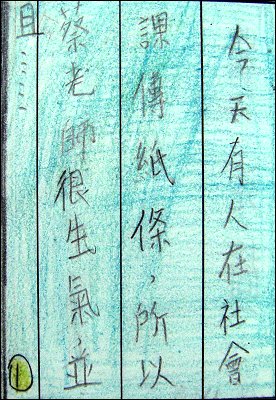 今天有人在社會
課傳紙條，所以
蔡老師很生氣，並
且……
1